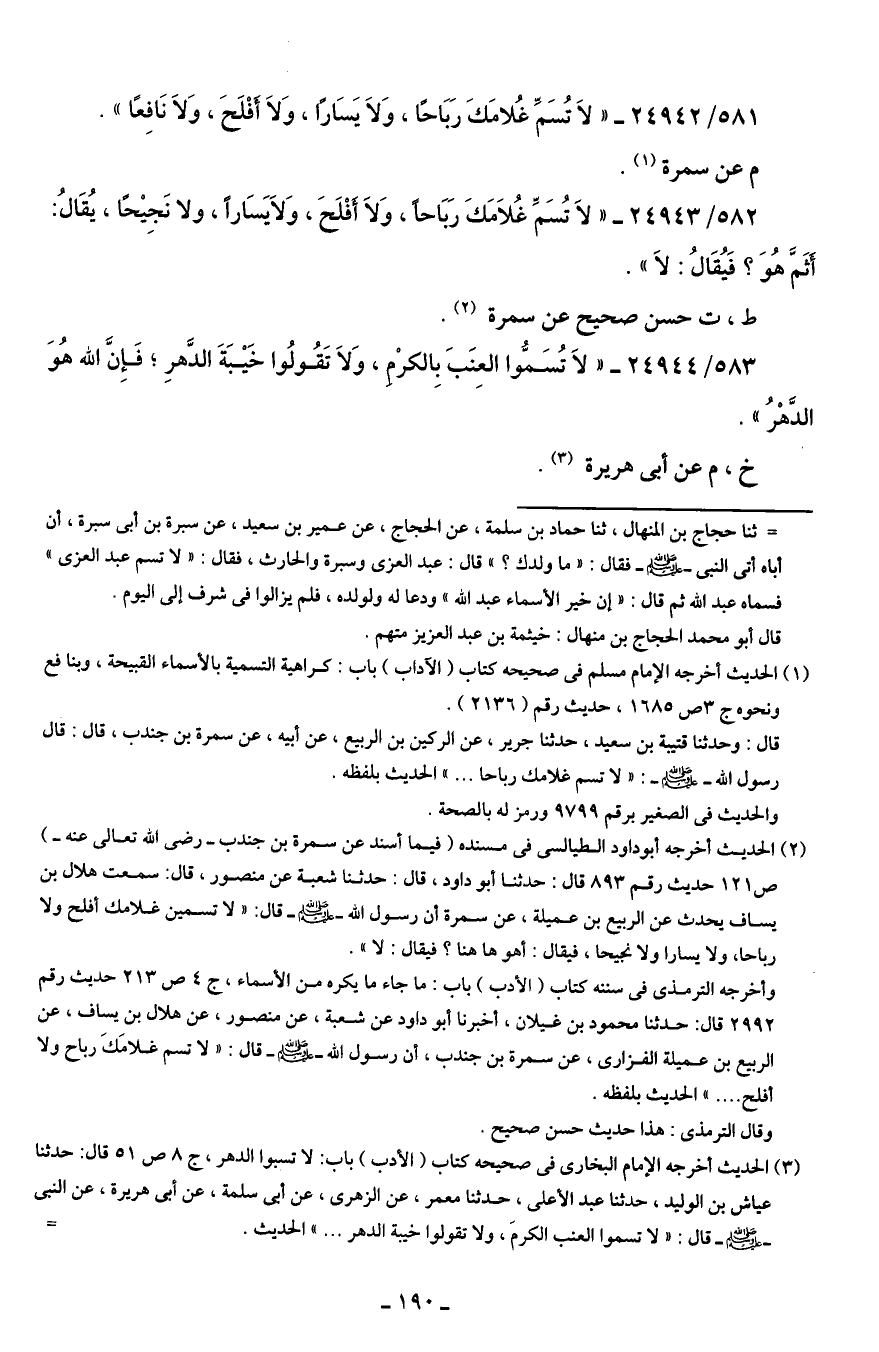 ٢٤٩٤٢/٥٨١ ـ « لاَ تُسَمِّ غُلامَكَ رَبَاحًا ، وَلاَ يَسَارًا ، وَلاَ أَفْلَحَ ، وَلاَ نَافِعًا » .
م عن سمرة (١) .
٢٤٩٤٣/٥٨٢ ـ « لاَ تُسَمِّ غُلاَمَكَ رَبَاحاً ، وَلاَ أَفْلَحَ ، وَلاَيَسَاراً ، ولا نَجِيْحًا ، يُقَالُ:
أَثَمَّ هُوَ ؟ فَيُقَالُ : لاَ » .
ط ، ت حسن صحيح عن سمرة (٢) .
٢٤٩٤٤/٥٨٣ ـ « لاَ تُسَمُّوا العِنَبَ بِالكرْمِ ، وَلاَ تَقُولُوا خَيْبَةَ الدَّهرِ ؛ فَإِنَّ الله هُوَ
الدَّهْرُ » .
خ ، م عن أبى هريرة (٣) .
= ثنا حجاج بن المنهال ، ثنا حماد بن سلمة ، عن الحجاج ، عن عمير بن سعيد ، عن سبرة بن أبى سبرة ، أن
أباه أتى النبى ـ ﷺ ـ فقال : « ما ولدك ؟ » قال : عبد العزى وسبرة والحارث ، فقال : « لا تسم عبد العزى »
فسماه عبد الله ثم قال : « إن خير الأسماء عبد الله » ودعا له ولولده ، فلم يزالوا فى شرف إلى اليوم .
قال أبو محمد الحجاج بن منهال : خيثمة بن عبد العزيز متهم .
(١) الحديث أخرجه الإمام مسلم فى صحيحه كتاب ( الآداب ) باب : كراهية التسمية بالأسماء القبيحة ، وبنا فع
ونحوه ج ٣ص ١٦٨٥ ، حديث رقم ( ٢١٣٦ ) .
قال : وحدثنا قتيبة بن سعيد ، حدثنا جرير ، عن الركين بن الربيع ، عن أبيه ، عن سمرة بن جندب ، قال : قال
رسول الله ـ ﷺ ـ : « لا تسم غلامك رباحا ... » الحديث بلفظه .
والحديث فى الصغير برقم ٩٧٩٩ ورمز له بالصحة .
(٢) الحديث أخرجه أبوداود الطيالسى فى مسنده ( فيما أسند عن سمرة بن جندب ـ رضى الله تعالى عنه ـ )
ص١٢١ حديث رقم ٨٩٣ قال : حدثنا أبو داود ، قال : حدثنا شعبة عن منصور ، قال: سمعت هلال بن
يساف يحدث عن الربيع بن عميلة ، عن سمرة أن رسول الله ـ ﷺ ـ قال: « لا تسمين غلامك أفلح ولا
رباحا، ولا يسارا ولا نجيحا ، فيقال : أهو ها هنا ؟ فيقال : لا » .
وأخرجه الترمذى فى سننه كتاب ( الأدب ) باب : ما جاء ما يكره من الأسماء ، ج ٤ ص ٢١٣ حديث رقم
٢٩٩٢ قال: حدثنا محمود بن غيلان ، أخبرنا أبو داود عن شعبة ، عن منصور ، عن هلال بن يساف ، عن
الربيع بن عميلة الفزارى ، عن سمرة بن جندب ، أن رسول الله ـ ﷺ ـ قال : « لا تسم غلامَكَ رباح ولا
أفلح.... » الحديث بلفظه .
وقال الترمذى : هذا حديث حسن صحيح .
(٣) الحديث أخرجه الإمام البخارى فى صحيحه كتاب ( الأدب ) باب: لا تسبوا الدهر ، ج ٨ ص ٥١ قال: حدثنا
عياش بن الوليد ، حدثنا عبد الأعلى ، حدثنا معمر ، عن الزهرى ، عن أبى سلمة ، عن أبى هريرة ، عن النبى
ـ ﷺ ـ قال : « لا تسموا العنب الكرمَ ، ولا تقولوا خيبة الدهر ... » الحديث . =
ـ ١٩٠ ـ